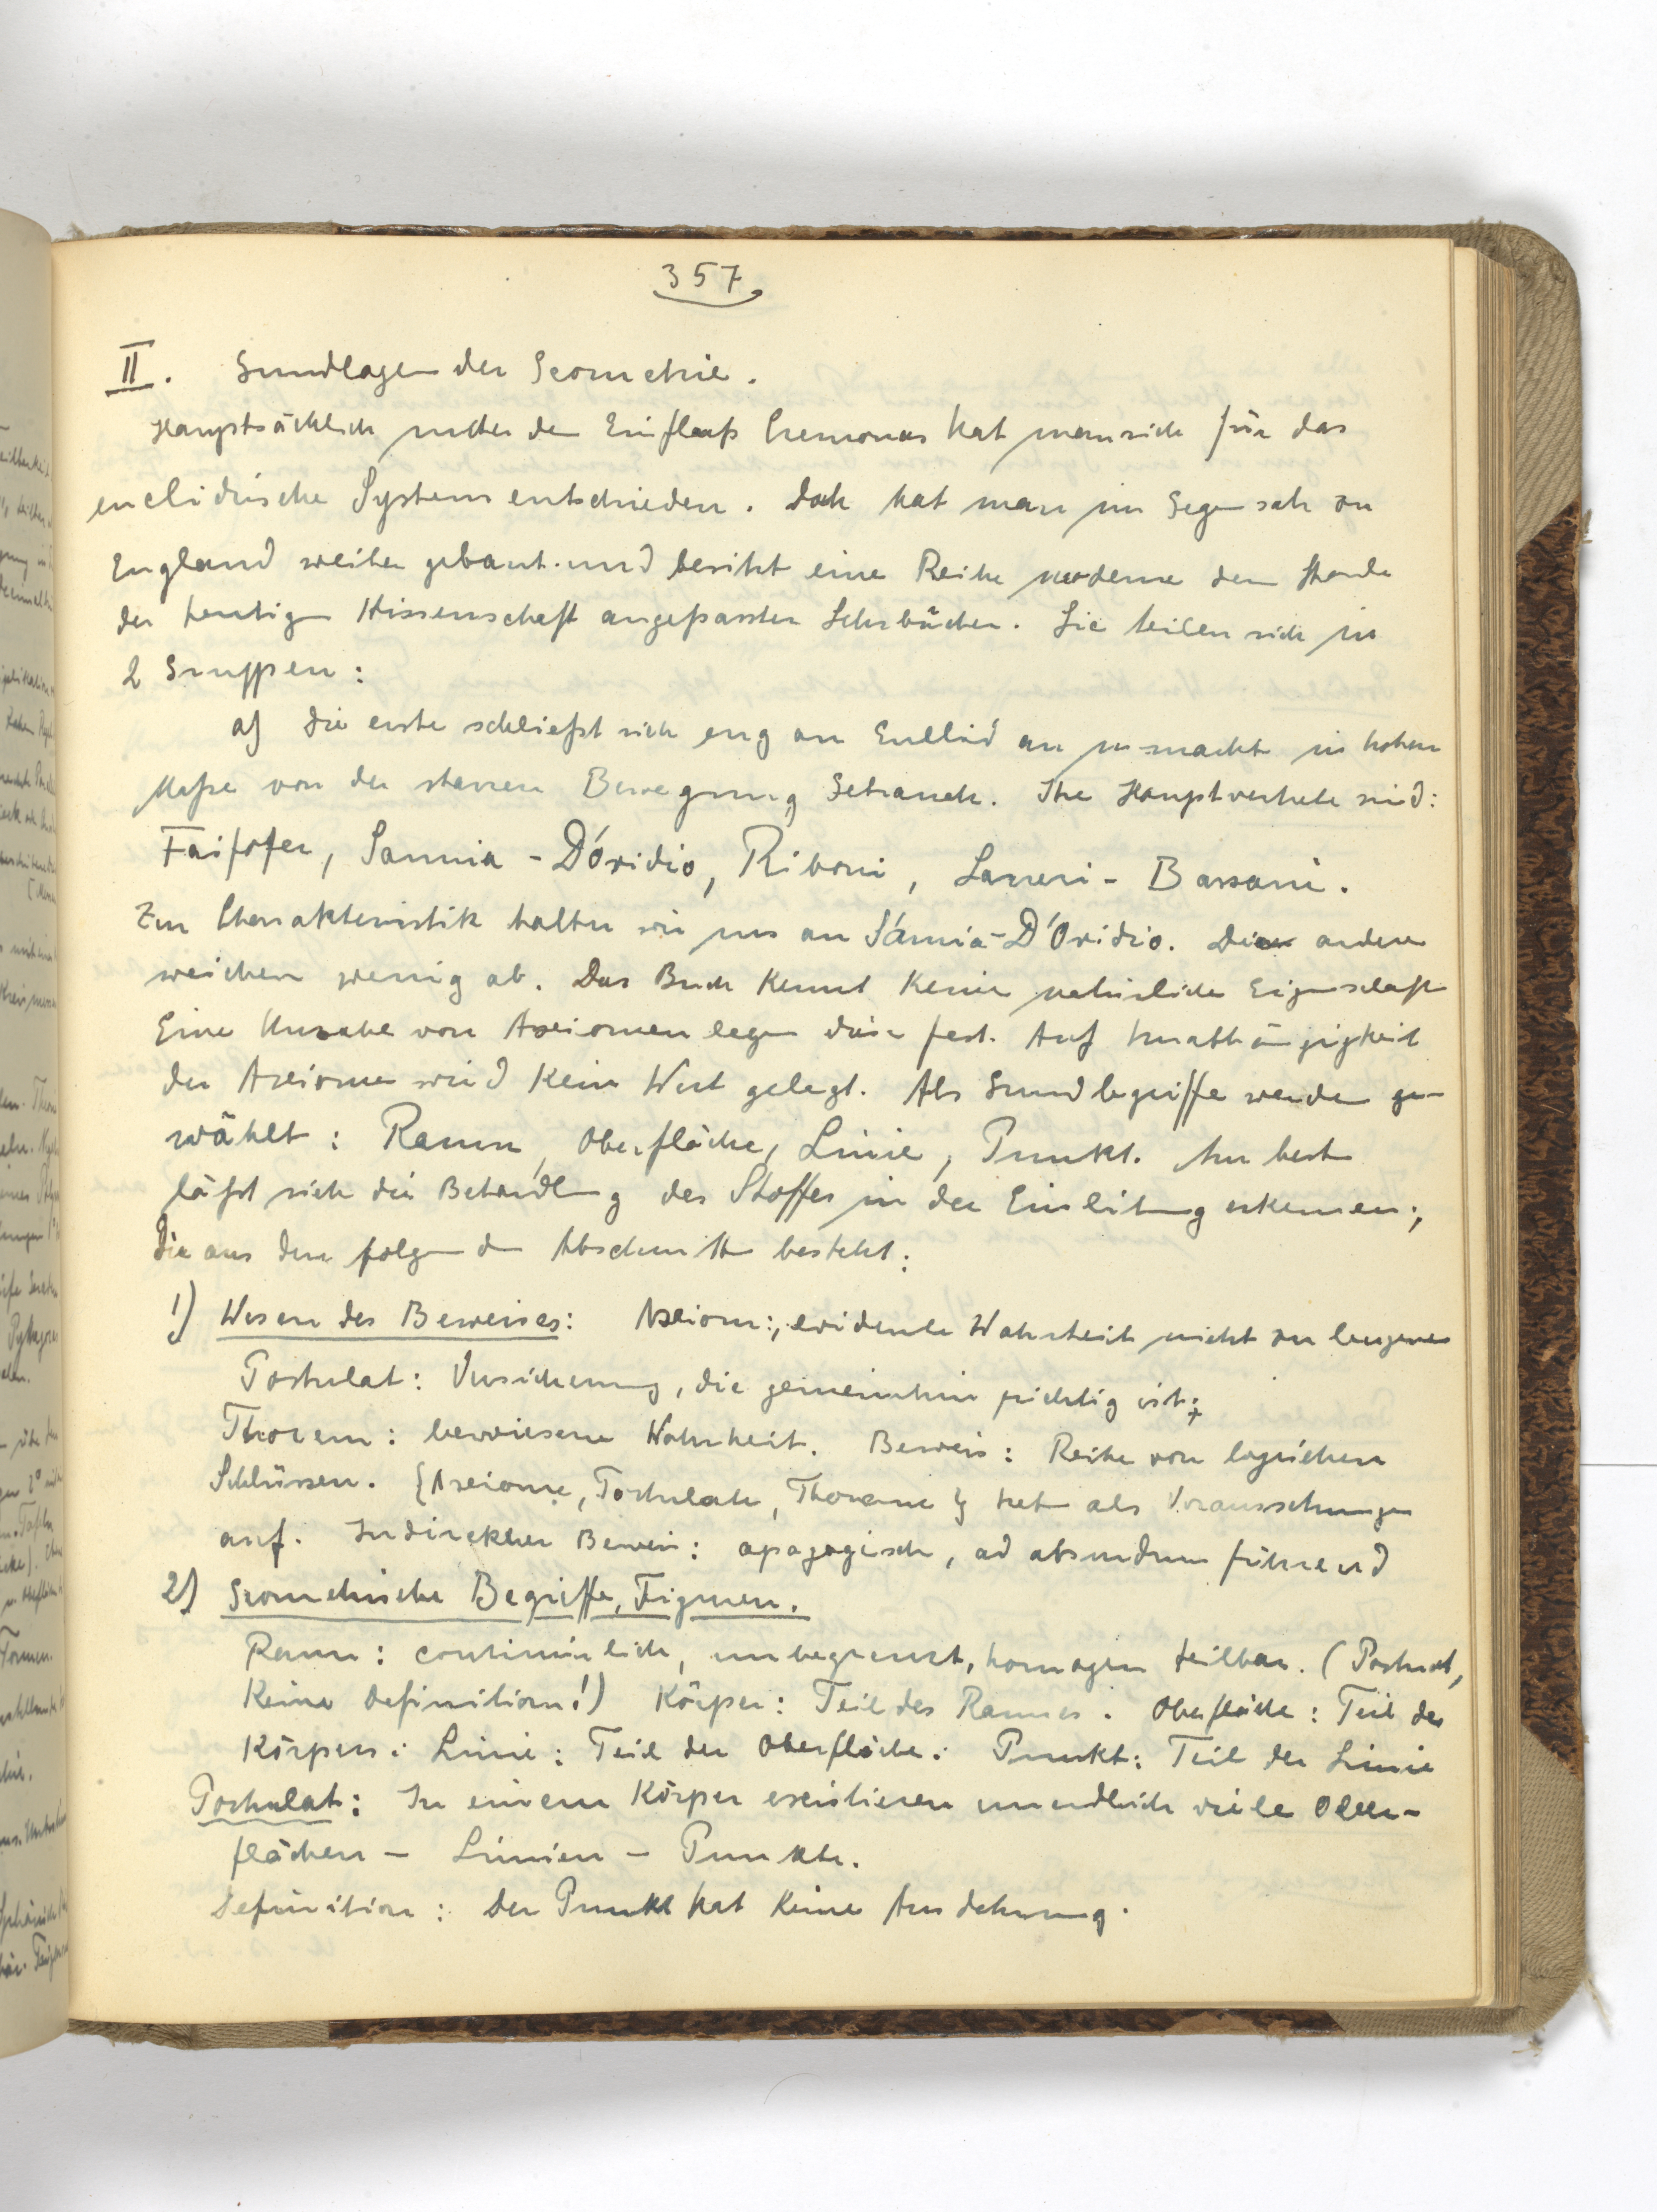 357
II. Grundlagen der Geometrie.
Hauptsächlich unter dem Einfluß Cremonas hat man sich für das
euclidische System entschieden. Doch hat man im Gegensatz zu
England weiter gebaut und besitzt eine Reihe moderne dem Stande
der heutigen Wissenschaft angepasster Lehrbücher. Sie teilen sich in
2 Gruppen:
a) Die erste schließt sich eng an Euklid an u. macht in hohem
Maße von der starren Bewegung Gebrauch. Ihre Hauptvertreter sind:
Faifofer, Sannia - D'Ovidio, Riboni, Lazzeri - Bassani.
Zur Charakteristik halten wir uns an Sánnia-D'Ovidio. Die andern
weichen wenig ab. Das Buch kennt keine natürliche Eigenschaft
Eine Unzahl von Axiomen legen diese fest. Auf Unabhängigkeit
der Axiome wird kein Wert gelegt. Als Grundbegriffe werden ge-
wählt: Raum, Oberfläche, Linie, Punkt. Am besten
läßt sich die Behandlung des Stoffes in der Einleitung erkennen;
die aus den folgenden Abschnitten besteht:
1) Wesen des Beweises: Axiom: evidente Wahrheit nicht zu leugnen
Postulat: Versicherung, die gemeinhin richtig ist;
Thorem: bewiesene Wahrheit. Beweis: Reihe von logischen
Schlüssen. {Axiome, Postulate, Thoreme} treten als Voraussetzungen
auf. Indirekter Beweis: apagogisch, ad absurdum führend
2) Geometrische Begriffe, Figuren.
Raum: continuirlich, unbegrenzt, homogen teilbar. (Postulat,
Keine Definition!) Körper: Teil des Raumes. Oberfläche: Teil des
Körpers: Linie: Teil der Oberfläche: Punkt: Teil der Linie
Postulat: In einem Körper existieren unendlich viele Ober-
flächen - Linien - Punkte.
Definition: Der Punkt hat keine Ausdehnung.